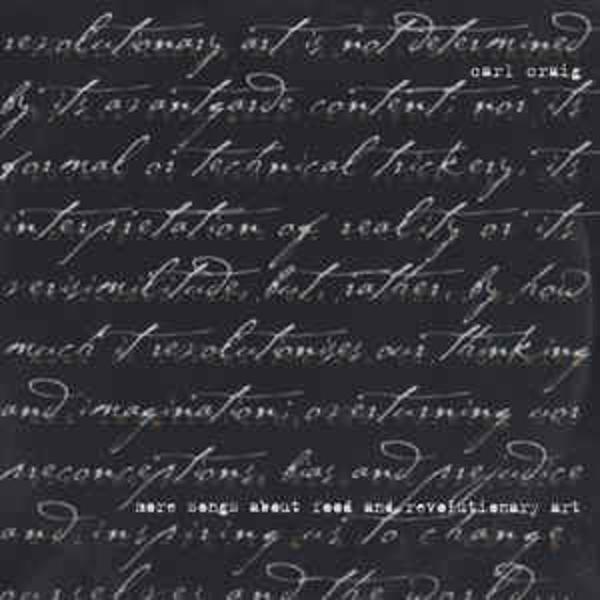 revolutionary art is not determined
carl craig
by its avantgarde content; nor its
formal or technical trickery, its
interpretation of reality or its
verisimilitude, but, rather, by how
much it revolutionises our thinking
and imagination; overturning our
preconceptions, bias and prejudice
more songs about food and revolutionary art
and inspiring us to change
ourselves and the world